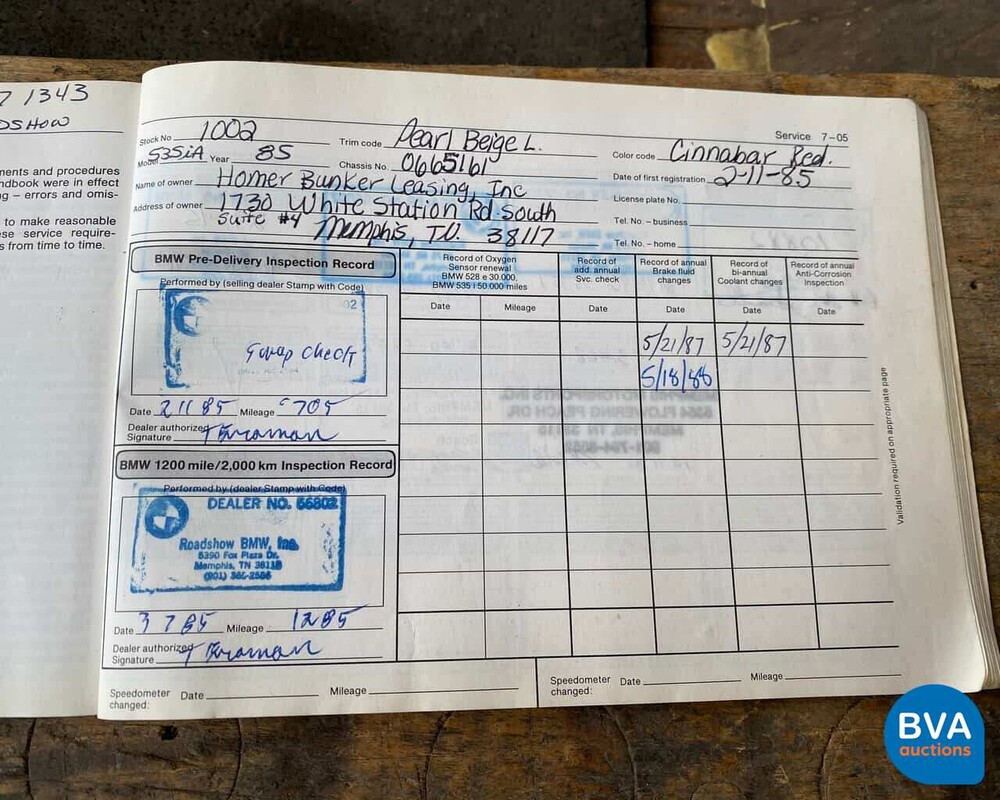 7 1343
DSHOW
nents and procedures
ndbook were in effect
ng – errors and omis-
to make reasonable
ese service require-
s from time to time.
Service 7–05
Stock No 1002 Trim code Pearl Beige L. Color code Cinnabar Red.
Model 535iA Year 85 Chassis No. 0665161 Date of first registration 2-11-85
Name of owner Homer Bunker Leasing, Inc License plate No.
Address of owner 1730 White Station Rd. South Tel. No. – business
Suite #4 Memphis, T.N. 38117 Tel. No. – home
BMW Pre-Delivery Inspection Record
Performed by (selling dealer Stamp with Code)
02
Date 2 11 85 Mileage 705
Dealer authorized
Signature
BMW 1200 mile/2,000 km Inspection Record
Performed by (dealer Stamp with Code)
DEALER NO. 66802
Roadshow BMW, Inc.
5390 Fox Plaza Dr.
Memphis, TN 38115
(901) 365-2586
Date 3 7 85 Mileage 1285
Dealer authorized
Signature
Record of Oxygen
Sensor renewal
BMW 528 e 30.000,
BMW 535 i 50 000 miles
Record of
add. annual
Svc. check
Record of annual
Brake fluid
changes
Record of
bi-annual
Coolant changes
Record of annual
Anti-Corrosion
Inspection
Date Mileage Date Date Date Date
5/21/87 5/21/87
5/18/88
Validation required on appropriate page
Speedometer
changed: Date Mileage
Speedometer
changed: Date Mileage
BVA
auctions